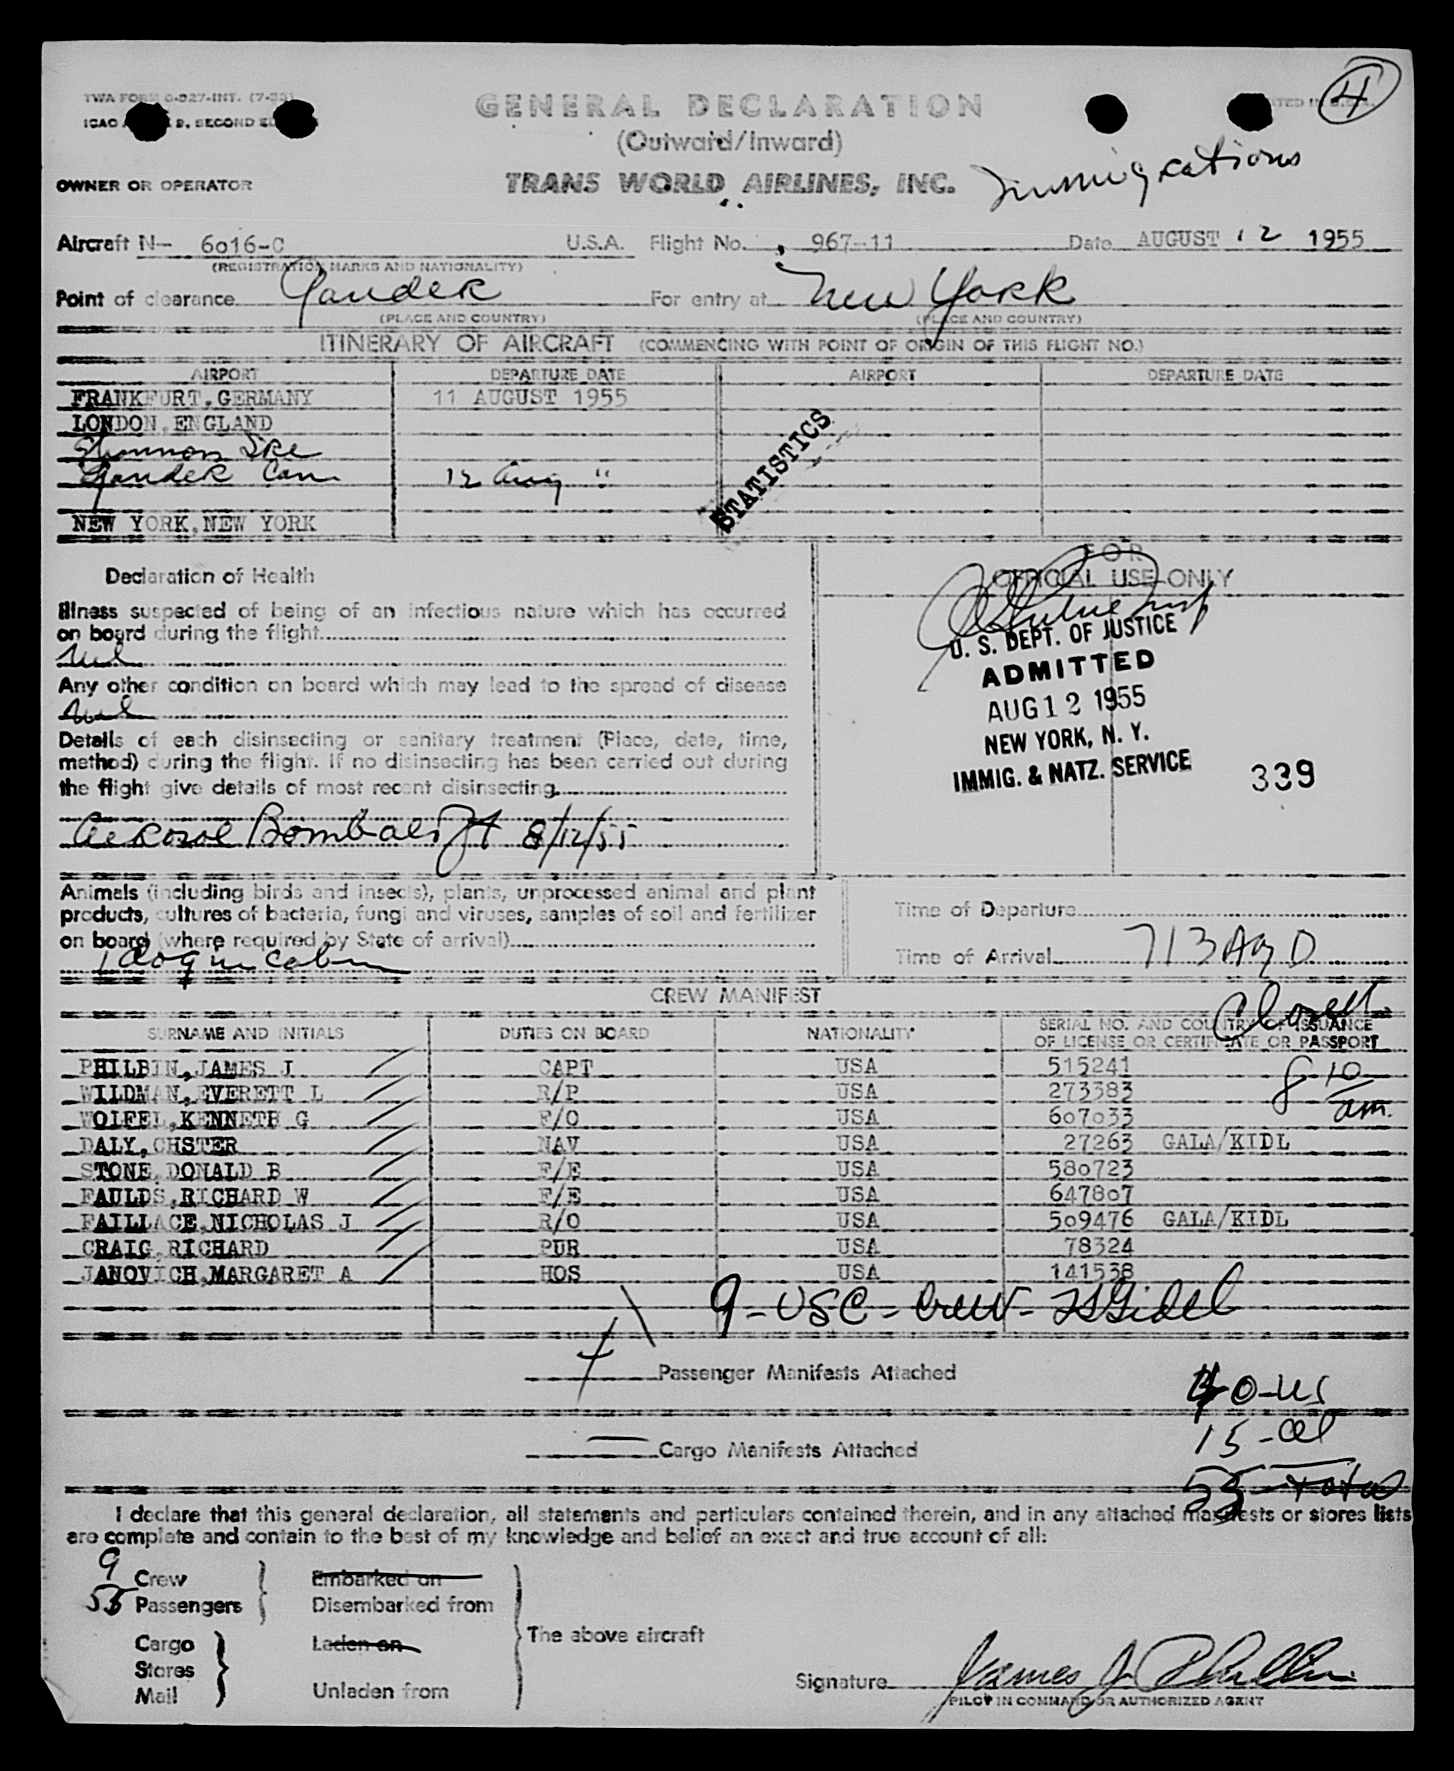 TWA FORM O-327-INT. (7-53)
ICAO B, SECOND
4
GENERAL DECLARATION
(Outward/Inward)
Immigrations
OWNER OR OPERATOR TRANS WORLD AIRLINES, INC.
Aircraft N- 6016-C U.S.A. Flight No. 967-11 Date AUGUST 12 1955
(REGISTRATION MARKS AND NATIONALITY)
Point of clearance Gander For entry at New York
(PLACE AND COUNTRY) (PLACE AND COUNTRY)
ITINERARY OF AIRCRAFT (COMMENCING WITH POINT OF ORIGIN OF THIS FLIGHT NO.)
AIRPORT DEPARTURE DATE AIRPORT DEPARTURE DATE
FRANKFURT, GERMANY 11 AUGUST 1955
LONDON, ENGLAND
Shannon Ire
Gander Can 12 Aug "
NEW YORK, NEW YORK
STATISTICS
Declaration of Health
Illness suspected of being of an infectious nature which has occurred
on board during the flight
Nil
Any other condition on board which may lead to the spread of disease
Nil
Details of each disinsecting or sanitary treatment (Place, date, time,
method) during the flight. If no disinsecting has been carried out during
the flight give details of most recent disinsecting
Aerosol Bomb 8/12/55
FOR
OFFICIAL USE ONLY
U. S. DEPT. OF JUSTICE
ADMITTED
AUG 12 1955
NEW YORK, N. Y.
IMMIG. & NATZ. SERVICE
339
Animals (including birds and insects), plants, unprocessed animal and plant
products, cultures of bacteria, fungi and viruses, samples of soil and fertilizer
on board (where required by State of arrival)
1 dog in cabin
Time of Departure
Time of Arrival 713 A
CREW MANIFEST
SURNAME AND INITIALS DUTIES ON BOARD NATIONALITY SERIAL NO. AND COUNTRY OF ISSUANCE
OF LICENSE OR CERTIFICATE OR PASSPORT
PHILBIN, JAMES J CAPT USA 515241
WILDMAN, EVERETT L R/P USA 273383
WOLFEL, KENNETH G F/O USA 607033
DALY, CHSTER NAV USA 27263 GALA/KIDL
STONE, DONALD B F/E USA 580723
FAULDS, RICHARD W F/E USA 647807
FAILLACE, NICHOLAS J R/O USA 509476 GALA/KIDL
CRAIG, RICHARD PUR USA 78324
JANOVICH, MARGARET A HOS USA 141538
8 10
am
9 - USC - Crew -
Passenger Manifests Attached
Cargo Manifests Attached
40 - US
15 - al
55 - total
I declare that this general declaration, all statements and particulars contained therein, and in any attached manifests or stores lists
are complete and contain to the best of my knowledge and belief an exact and true account of all:
9 Crew Embarked on
55 Passengers Disembarked from
The above aircraft
Cargo Laden on
Stores
Mail Unladen from
Signature James J. Philbin
PILOT IN COMMAND OR AUTHORIZED AGENT